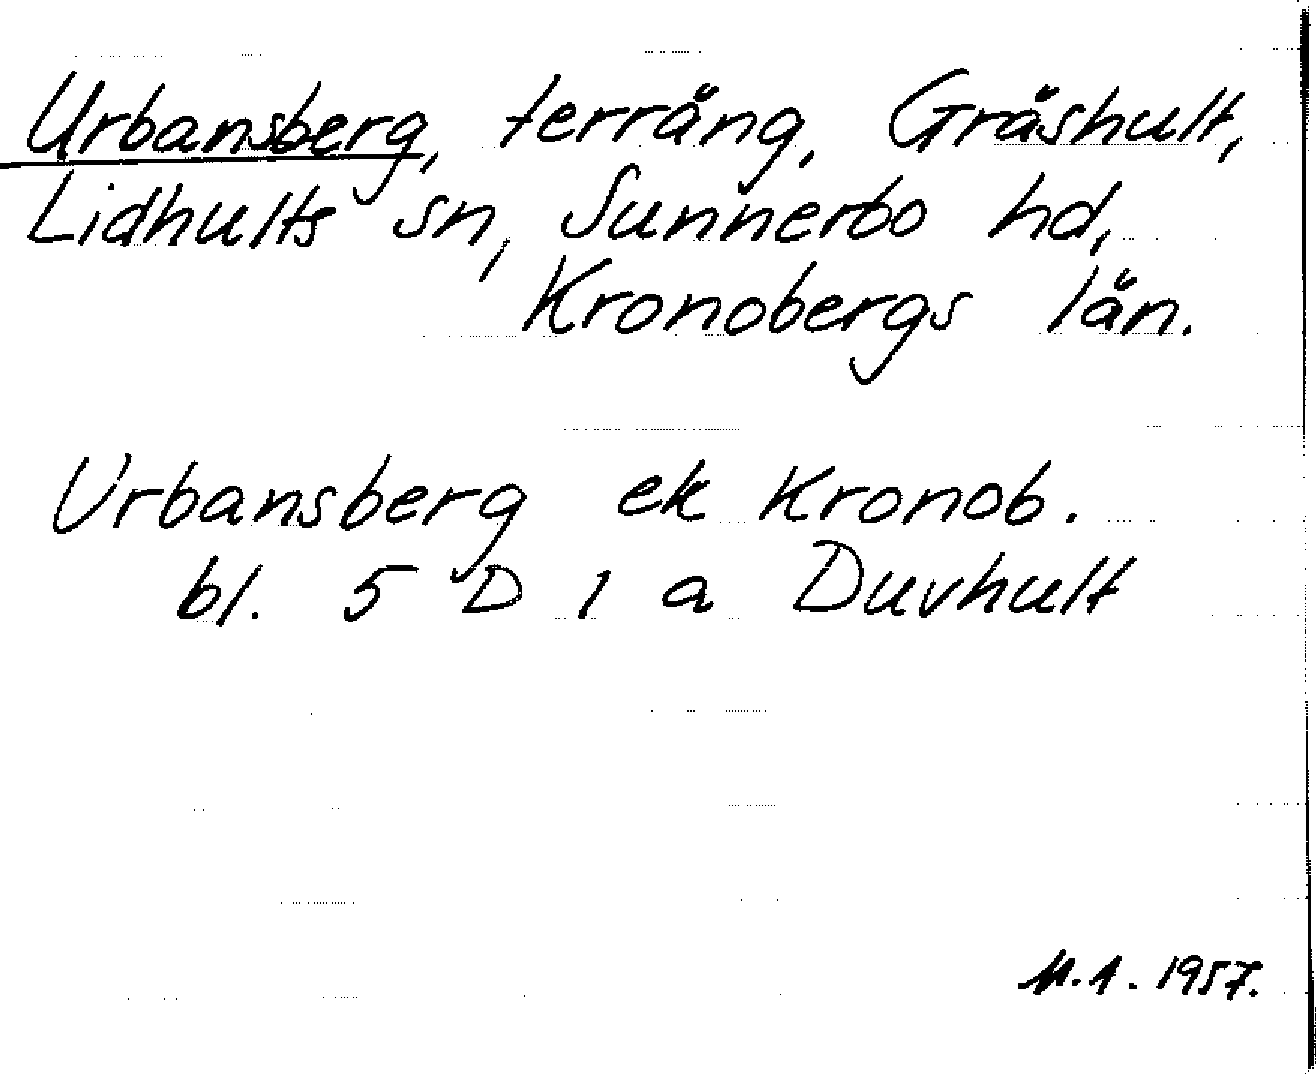 Urbansberg, terräng, Gräshult,
Lidhults sn, Sunnerbo hd,
Kronobergs län.
Urbansberg ek Kronob.
bl. 5 D 1 a Duvhult
1957.